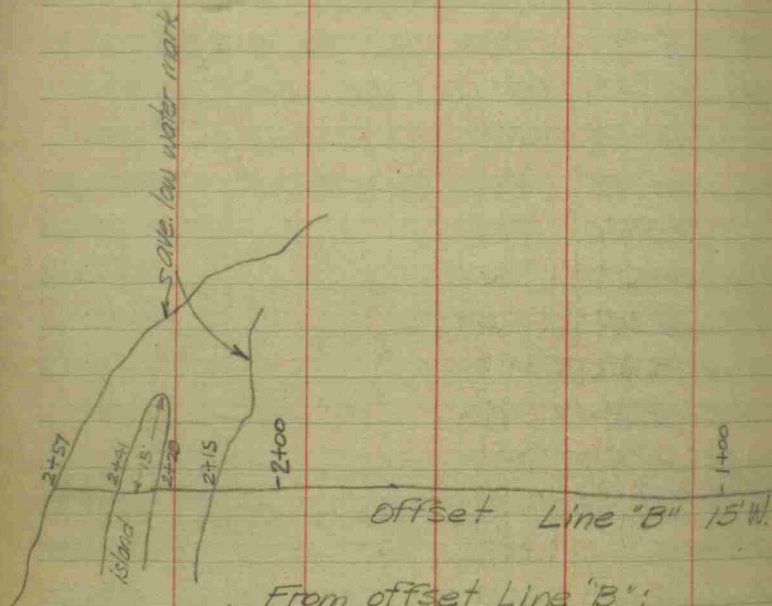 ave. low water mark
2+57
2+41
15'
2+20
2+15
2+00
1+00
island
Offset Line "B" 15' W.
From offset Line "B":